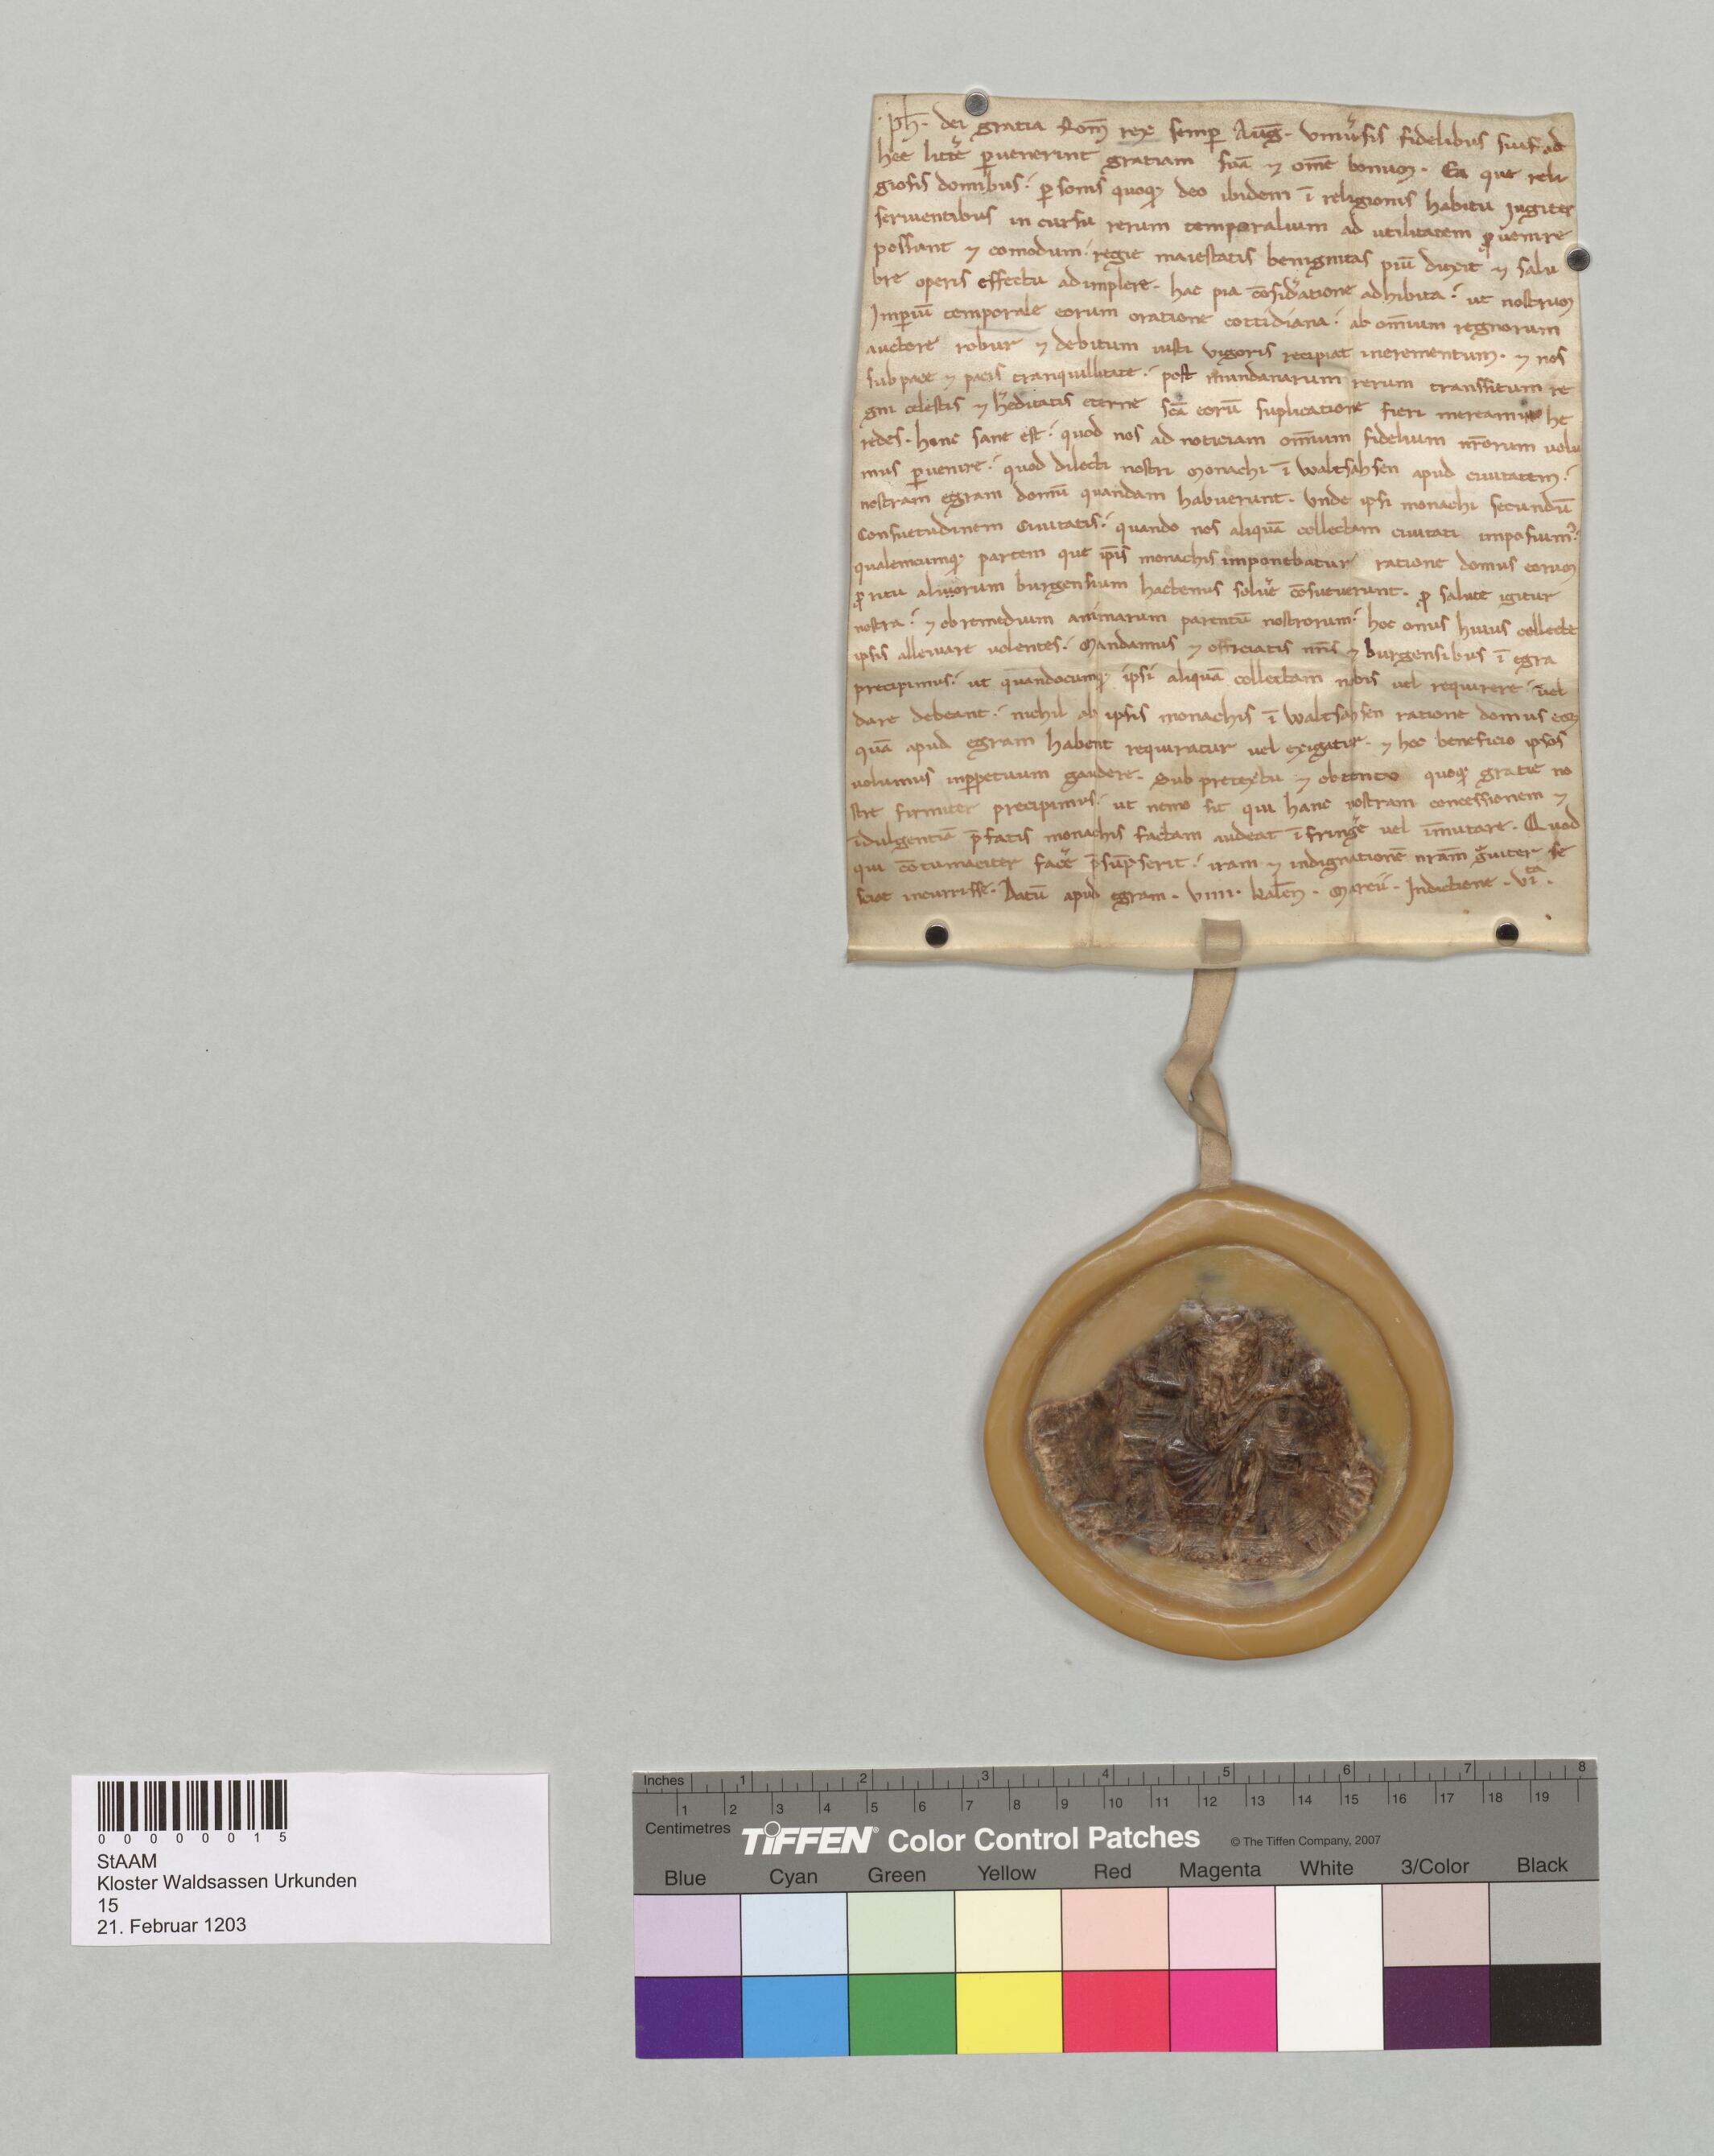 ph̄. dei gratia Rom̄ rex semp̄ Auḡ. Vniu̓sis fidelibus suis ad
hec litte̓ ꝑuenerint gratiam suā ⁊ om̄e bonum. Ea que reli
giosis domibus: ꝑsonis quoqꝫ deo ibidem ī religionis habitu Jugiter
seruientibus in cursu rerum temporalium ad utilitatem ꝓuenire
possant ⁊ comodum: regie maiestatis benignitas piū duxit ⁊ salu
bre operis effectu adimplere. hac pia cōsid̓atione adhibita: ut nostrum
Imꝑiū temporale eorum oratione cottidiana: ab om̄ium regnorum
auctore robur ⁊ debitum iusti vigoris recipiat incrementum. ⁊ nos
sub pace ⁊ pacis tranquillitate: post mundanarum rerum transitum re
gni celestis ⁊ h̓editatis eterne sc̄a eorū suplicatione fieri mereamur he
redes. hinc sane est: quod nos ad noticiam om̄ium fidelium nr̄orum uolu
mus ꝑuenire: quod dilecti nostri monachi ī waltsahsen apud ciuitatem:
nostram egram domū quandam habuerunt. Vnde ipsi monachi secundū
Consuetudinem Ciuitatis: quando nos aliquā collectam ciuitati imposuim᾿:
qualemcumqꝫ partem que ip̄is monachis imponebatur ratione domus eorum
ꝓ ritu aliuorum burgensium hactenus solu̓e cōsueuerunt. ꝓ salute igitur
nostra: ⁊ ob remedium animarum parentū nostrorum: hoc onus huius collecte
ipsis alleuiare uolentes: Mandamus ⁊ officiatis nr̄is ⁊ burgensibus ī egra
precipimus: ut quandocumqꝫ ipsi aliquā collectam nobis uel requirere: uel
dare debeant: nichil ab ipsis monachis ī waltsahsen ratione domus eoꝝ
quā apud egram habent requiratur uel exigatur. ⁊ hoc beneficio ipsos
uolumus inꝑpetuum gaudere. Sub pretextu ⁊ obtentu quoqꝫ gratie no
stre firmiter precipimus: ut nemo sit qui hanc nostram concessionem ⁊
īdulgentiā p̄fatis monachis factam audeat īfring̓e uel īmutare. Quod
qui cōtumaciter fac̓e p̄sūpserit: iram ⁊ indignationē nrām g̓uiter se
sciat incurrisse. Datū apud egram. VIIII. kalēn. Marcii. Indictione. VIta.
0 0 0 0 0 0 1 5
StAAM
Kloster Waldsassen Urkunden
15
21. Februar 1203
Inches 1 2 3 4 5 6 7 8
1 2 3 4 5 6 7 8 9 10 11 12 13 14 15 16 17 18 19
Centimetres
TIFFEN® Color Control Patches © The Tiffen Company, 2007
Blue Cyan Green Yellow Red Magenta White 3/Color Black